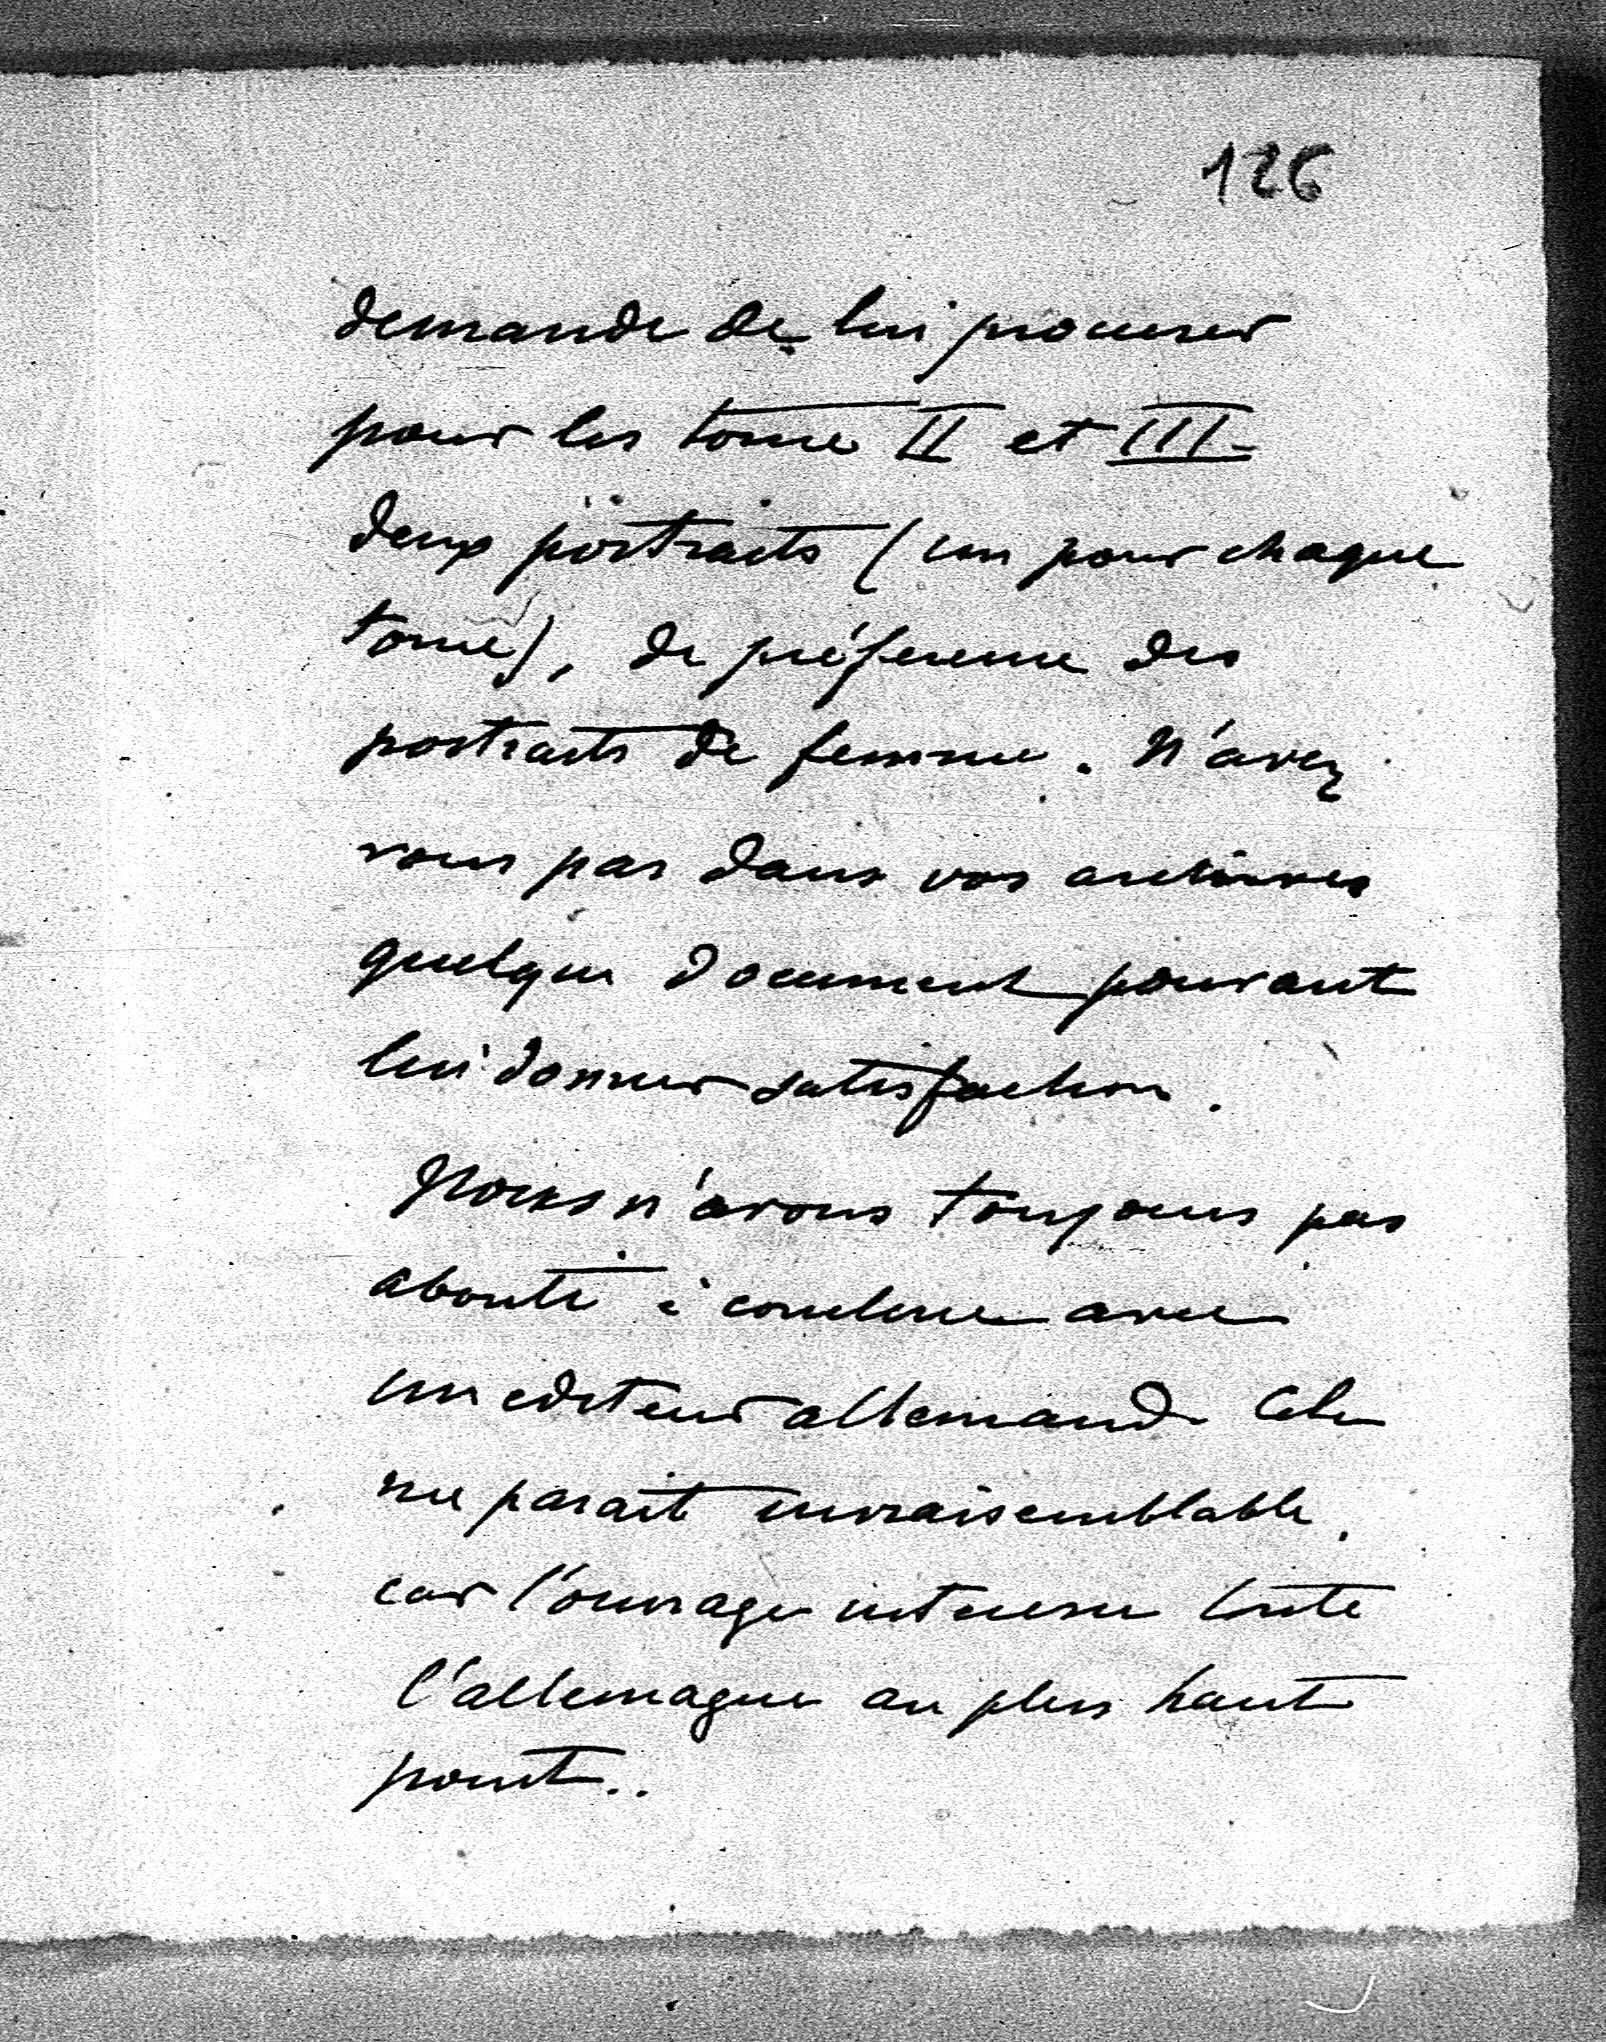 126
demande de lui procurer
pour les tome II et III -
deux portraits (un pour chaque
tome), de préférence des
portraits de femme. N'avez
vous pas dans vos archives
quelque document pouvant
lui donner satisfaction.
Nous n'avons toujours pas
abouti à conclure avec
un editeur allemand. Cela
me parait invraisemblable,
car l'ouvrage interesse toute
l'allemagne au plus haut
point..